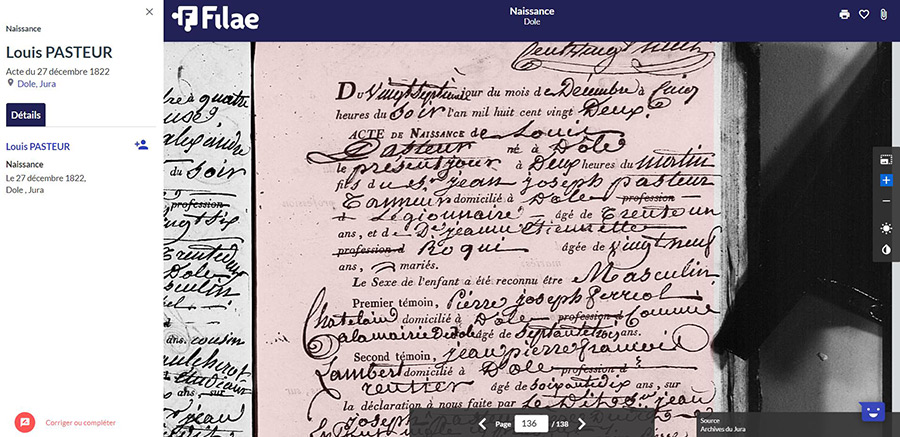 Naissance
Louis PASTEUR
Acte du 27 décembre 1822
Dole, Jura
Détails
Louis PASTEUR
Naissance
Le 27 décembre 1822,
Dole , Jura
Corriger ou compléter
Filae
Naissance
Dole
à quatre
alexandre
du Soir
profession
Dole
ans. cousin
jean
Du Vingt Septième jour du mois de Décembre à Cinq
heures du Soir l'an mil huit cent vingt Deux.
ACTE DE NAISSANCE de Louis
Pasteur né à Dole
le présent jour à Deux heures du matin
fils du Sr. jean joseph pasteur
Tanneur domicilié à Dole profession
d Légionnaire âgé de Trente un
ans, et de De. jeanne Etiennette
profession d Roqui âgée de Vingt neuf
ans, mariés.
Le Sexe de l'enfant a été reconnu être Masculin
Premier témoin, Pierre joseph
Chatelain domicilié à Dole profession d Commis
a la mairie de dole âgé de Septante trois ans.
Second témoin, jean pierre francois
Lambert domicilié à Dole profession d
rentier âgé de Soixante dix ans, sur
la déclaration à nous faite par Le Dit Sr. jean
joseph
Page 136 / 138
Source
Archives du Jura